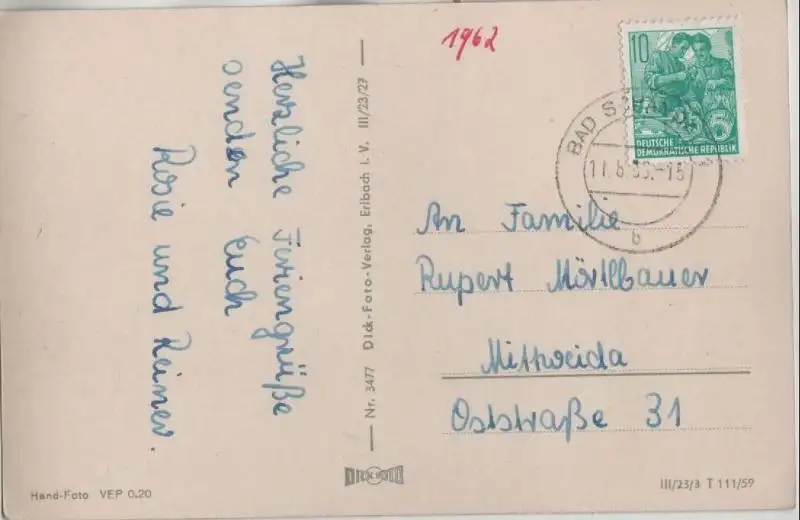 Herzliche Feriengrüße
senden Euch
Rosie und Reiner.
Nr. 3477 Dick-Foto-Verlag, Erlbach i. V. III/23/27
DICK FOTO
Hand-Foto VEP 0.20
1962
10
DEUTSCHE
DEMOKRATISCHE REPUBLIK
BAD
b
An Familie
Rupert Mörtlbauer
Mittweida
Oststraße 31
III/23/3 T 111/59